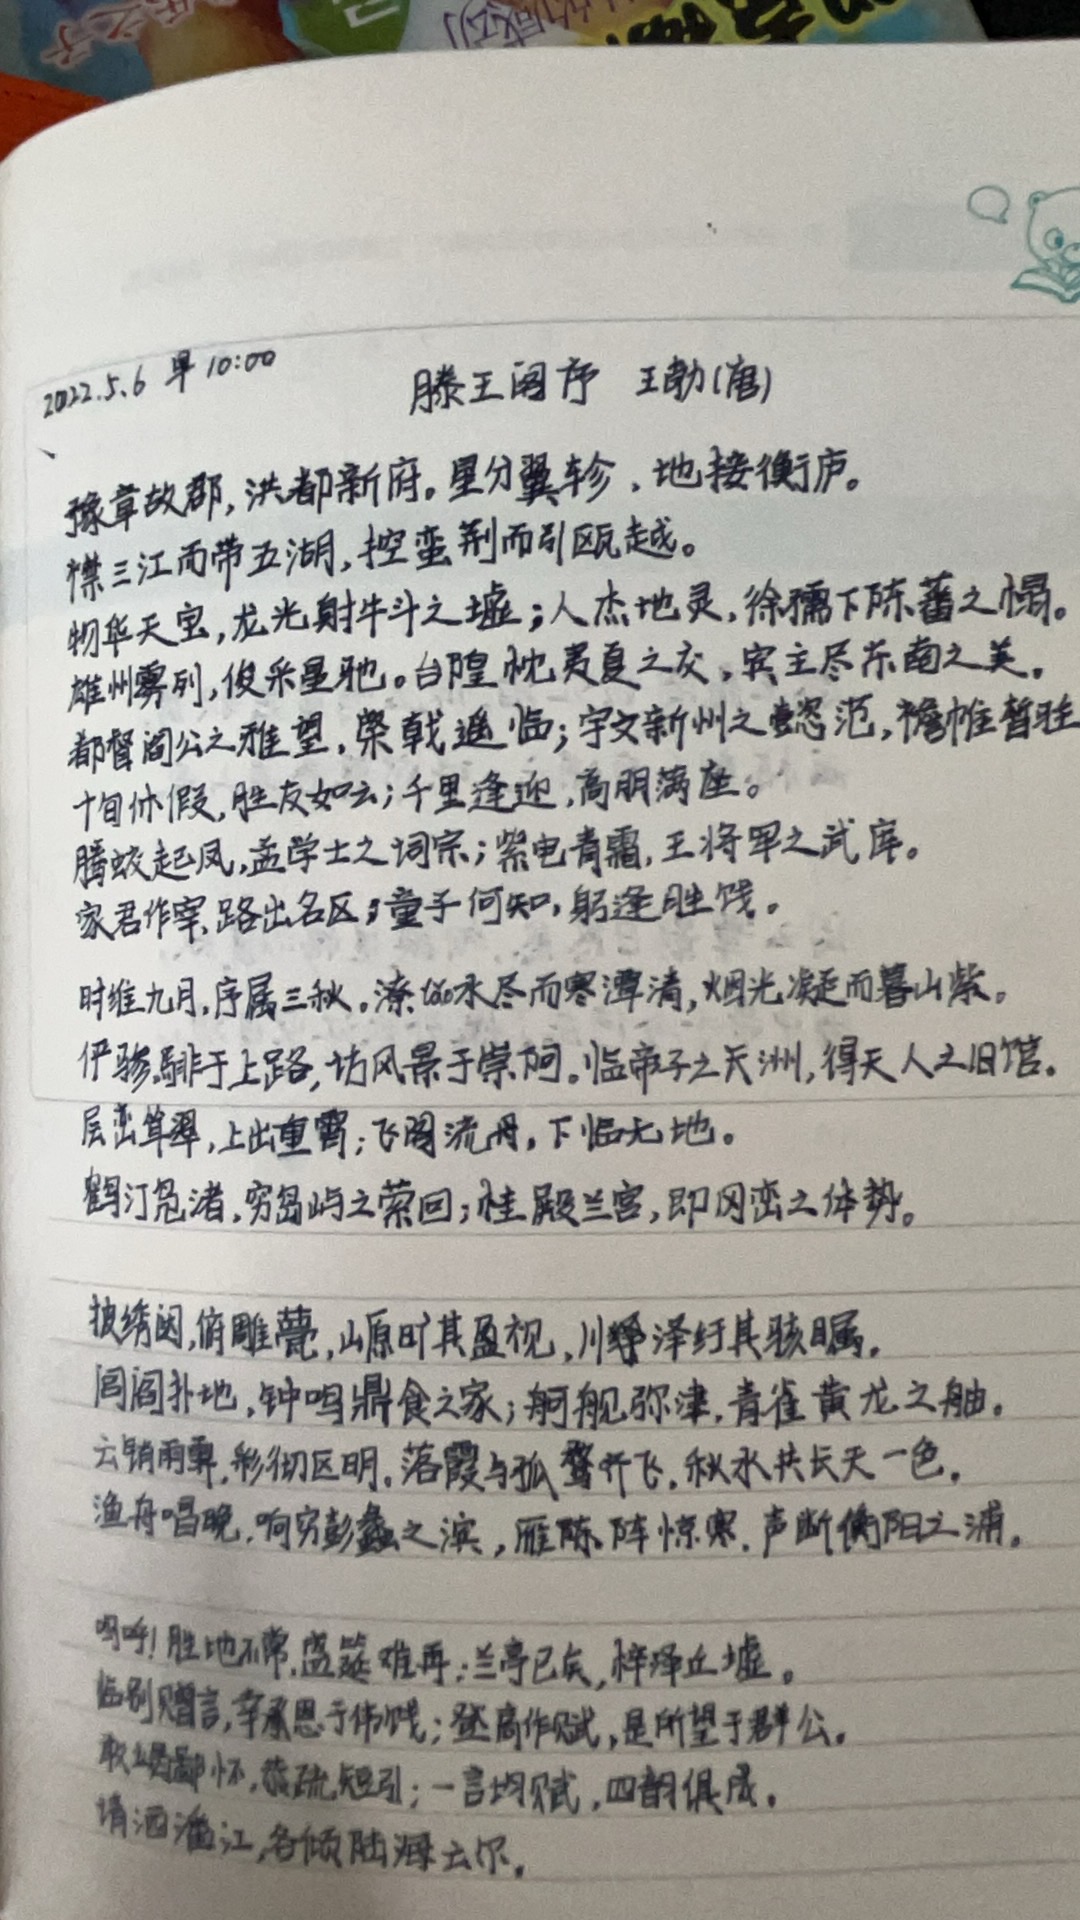 2022.5.6 早10:00
滕王阁序 王勃(唐)
豫章故郡,洪都新府。星分翼轸,地接衡庐。
襟三江而带五湖,控蛮荆而引瓯越。
物华天宝,龙光射牛斗之墟;人杰地灵,徐孺下陈蕃之榻。
雄州雾列,俊采星驰。台隍枕夷夏之交,宾主尽东南之美。
都督阎公之雅望,棨戟遥临;宇文新州之懿范,襜帷暂驻
十旬休假,胜友如云;千里逢迎,高朋满座。
腾蛟起凤,孟学士之词宗;紫电青霜,王将军之武库。
家君作宰,路出名区;童子何知,躬逢胜饯。
时维九月,序属三秋。潦水尽而寒潭清,烟光凝而暮山紫。
俨骖騑于上路,访风景于崇阿。临帝子之天洲,得天人之旧馆。
层峦耸翠,上出重霄;飞阁流丹,下临无地。
鹤汀凫渚,穷岛屿之萦回;桂殿兰宫,即冈峦之体势。
披绣闼,俯雕甍,山原旷其盈视,川泽纡其骇瞩。
闾阎扑地,钟鸣鼎食之家;舸舰弥津,青雀黄龙之舳。
云销雨霁,彩彻区明。落霞与孤鹜齐飞,秋水共长天一色。
渔舟唱晚,响穷彭蠡之滨,雁阵惊寒,声断衡阳之浦。
呜呼!胜地不常,盛筵难再;兰亭已矣,梓泽丘墟。
临别赠言,幸承恩于伟饯;登高作赋,是所望于群公。
敢竭鄙怀,恭疏短引;一言均赋,四韵俱成。
请洒潘江,各倾陆海云尔。